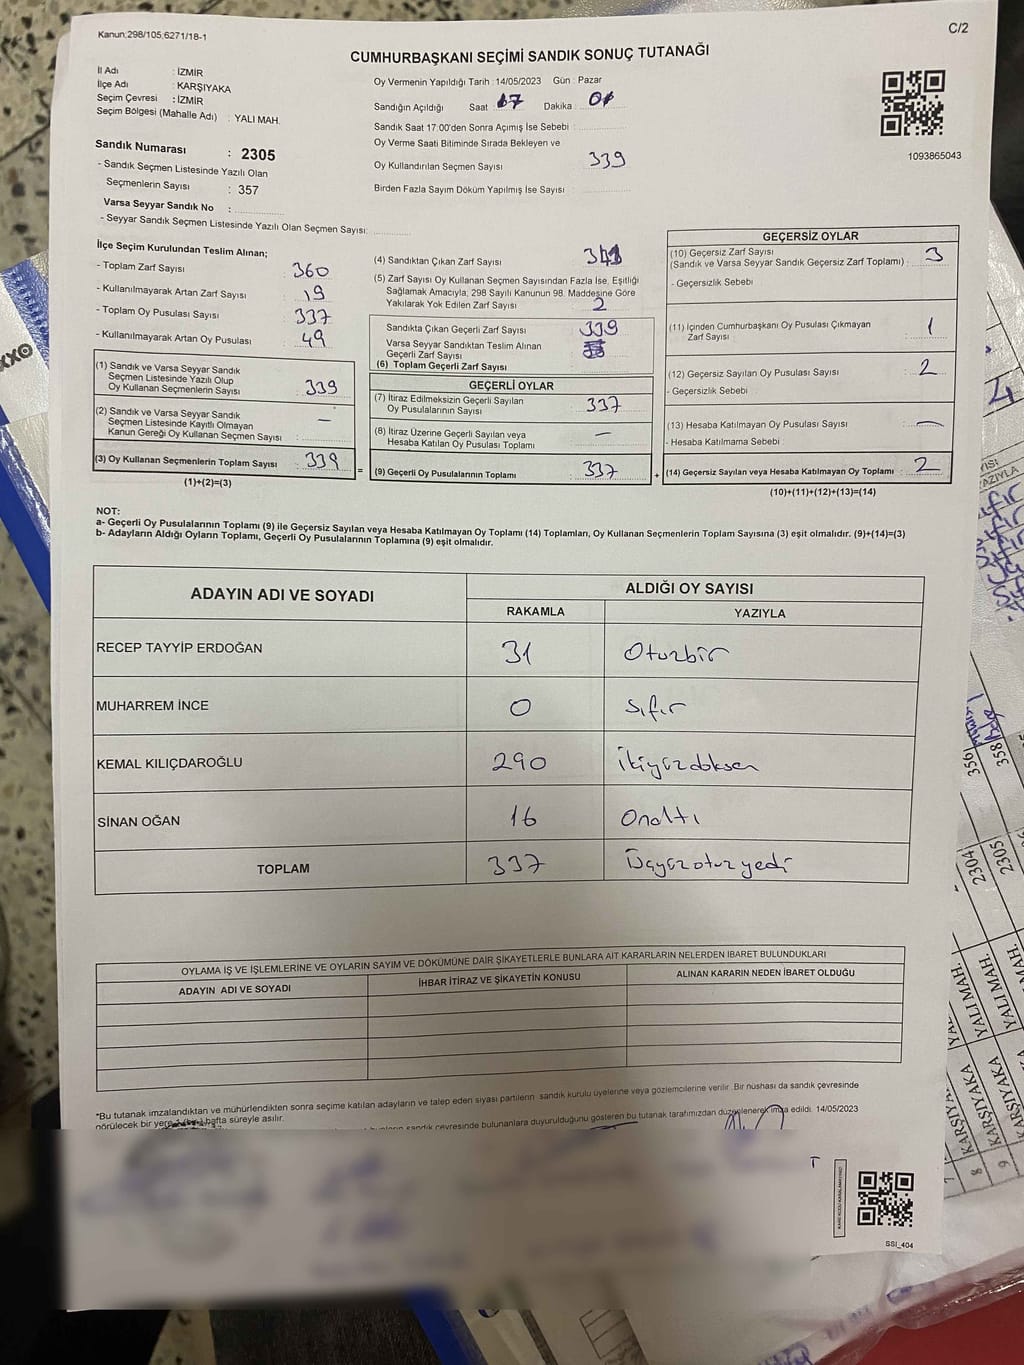 Kanun;298/105;6271/18-1
C/2
CUMHURBAŞKANI SEÇİMİ SANDIK SONUÇ TUTANAĞI
İl Adı : İZMİR
İlçe Adı : KARŞIYAKA
Seçim Çevresi : İZMİR
Seçim Bölgesi (Mahalle Adı) : YALI MAH.
Sandık Numarası : 2305
- Sandık Seçmen Listesinde Yazılı Olan
Seçmenlerin Sayısı : 357
Varsa Seyyar Sandık No :
- Seyyar Sandık Seçmen Listesinde Yazılı Olan Seçmen Sayısı:
Oy Vermenin Yapıldığı Tarih : 14/05/2023 Gün : Pazar
Sandığın Açıldığı Saat : 17 Dakika :
Sandık Saat 17:00'den Sonra Açımış İse Sebebi :
Oy Verme Saati Bitiminde Sırada Bekleyen ve
Oy Kullandırılan Seçmen Sayısı 339
Birden Fazla Sayım Döküm Yapılmış İse Sayısı :
1093865043
İlçe Seçim Kurulundan Teslim Alınan;
- Toplam Zarf Sayısı : 360
- Kullanılmayarak Artan Zarf Sayısı : 19
- Toplam Oy Pusulası Sayısı : 337
- Kullanılmayarak Artan Oy Pusulası : 49
(1) Sandık ve Varsa Seyyar Sandık
Seçmen Listesinde Yazılı Olup
Oy Kullanan Seçmenlerin Sayısı : 339
(2) Sandık ve Varsa Seyyar Sandık
Seçmen Listesinde Kayıtlı Olmayan
Kanun Gereği Oy Kullanan Seçmen Sayısı : —
(3) Oy Kullanan Seçmenlerin Toplam Sayısı : 339
(1)+(2)=(3)
(4) Sandıktan Çıkan Zarf Sayısı : 341
(5) Zarf Sayısı Oy Kullanan Seçmen Sayısından Fazla İse, Eşitliği
Sağlamak Amacıyla, 298 Sayılı Kanunun 98. Maddesine Göre
Yakılarak Yok Edilen Zarf Sayısı : 2
Sandıkta Çıkan Geçerli Zarf Sayısı : 339
Varsa Seyyar Sandıktan Teslim Alınan
Geçerli Zarf Sayısı
(6) Toplam Geçerli Zarf Sayısı
GEÇERLİ OYLAR
(7) İtiraz Edilmeksizin Geçerli Sayılan
Oy Pusulalarının Sayısı : 337
(8) İtiraz Üzerine Geçerli Sayılan veya
Hesaba Katılan Oy Pusulası Toplamı : —
= (9) Geçerli Oy Pusulalarının Toplamı : 337
GEÇERSİZ OYLAR
(10) Geçersiz Zarf Sayısı
(Sandık ve Varsa Seyyar Sandık Geçersiz Zarf Toplamı) : 3
- Geçersizlik Sebebi :
(11) İçinden Cumhurbaşkanı Oy Pusulası Çıkmayan
Zarf Sayısı : 1
(12) Geçersiz Sayılan Oy Pusulası Sayısı : 2
- Geçersizlik Sebebi :
(13) Hesaba Katılmayan Oy Pusulası Sayısı : —
- Hesaba Katılmama Sebebi :
+ (14) Geçersiz Sayılan veya Hesaba Katılmayan Oy Toplamı : 2
(10)+(11)+(12)+(13)=(14)
NOT:
a- Geçerli Oy Pusulalarının Toplamı (9) ile Geçersiz Sayılan veya Hesaba Katılmayan Oy Toplamı (14) Toplamları, Oy Kullanan Seçmenlerin Toplam Sayısına (3) eşit olmalıdır. (9)+(14)=(3)
b- Adayların Aldığı Oyların Toplamı, Geçerli Oy Pusulalarının Toplamına (9) eşit olmalıdır.
ADAYIN ADI VE SOYADI
ALDIĞI OY SAYISI
RAKAMLA YAZIYLA
RECEP TAYYİP ERDOĞAN 31 Otuzbir
MUHARREM İNCE 0 Sıfır
KEMAL KILIÇDAROĞLU 290 İkiyüzdoksan
SİNAN OĞAN 16 Onaltı
TOPLAM 337 Üçyüzotuzyedi
OYLAMA İŞ VE İŞLEMLERİNE VE OYLARIN SAYIM VE DÖKÜMÜNE DAİR ŞİKAYETLERLE BUNLARA AİT KARARLARIN NELERDEN İBARET BULUNDUKLARI
ADAYIN ADI VE SOYADI İHBAR İTİRAZ VE ŞİKAYETİN KONUSU ALINAN KARARIN NEDEN İBARET OLDUĞU
*Bu tutanak imzalandıktan ve mühürlendikten sonra seçime katılan adayların ve talep eden siyasi partilerin sandık kurulu üyelerine veya gözlemcilerine verilir .Bir nüshası da sandık çevresinde
görülecek bir yere 1 (bir) hafta süreyle asılır.
sandık çevresinde bulunanlara duyurulduğunu gösteren bu tutanak tarafımızdan düzenlenerek imza edildi. 14/05/2023
SSI_404
356
358
2304
2305
YALI MAH.
YALI MAH.
8 KARŞIYAKA
9 KARŞIYAKA